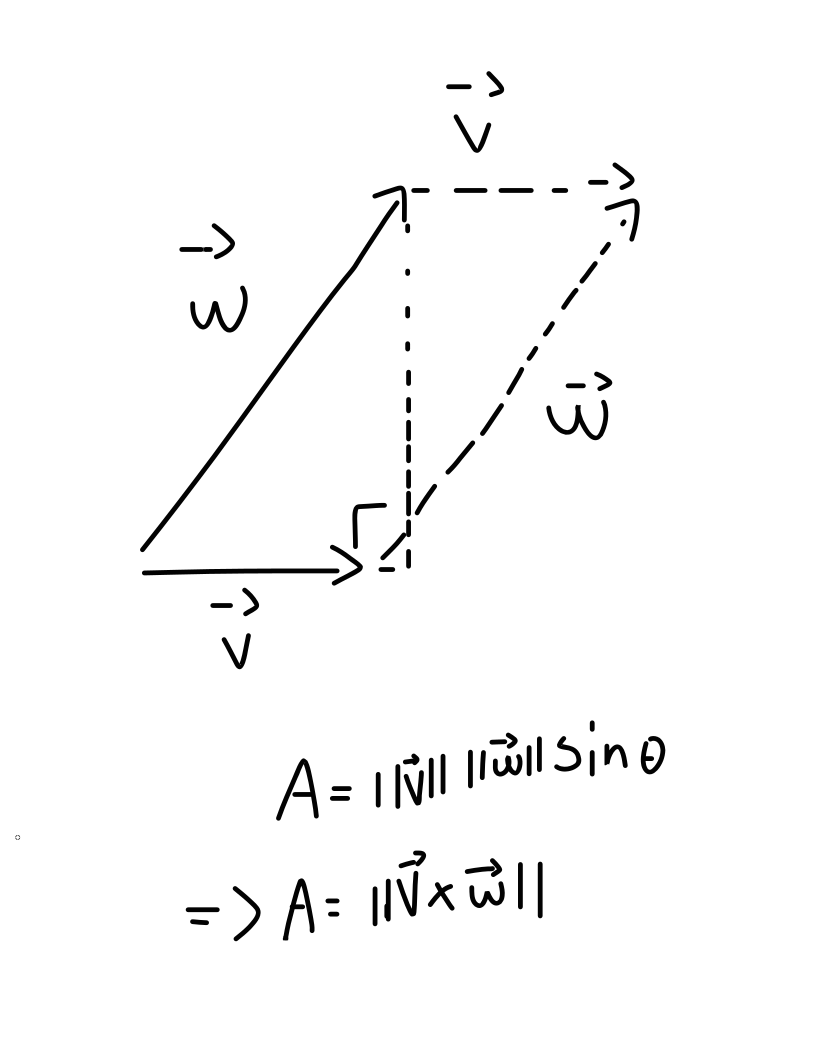 v⃗
w⃗
w⃗
v⃗
A = ||v⃗|| ||w⃗|| sin θ
=> A = ||v⃗ x w⃗||